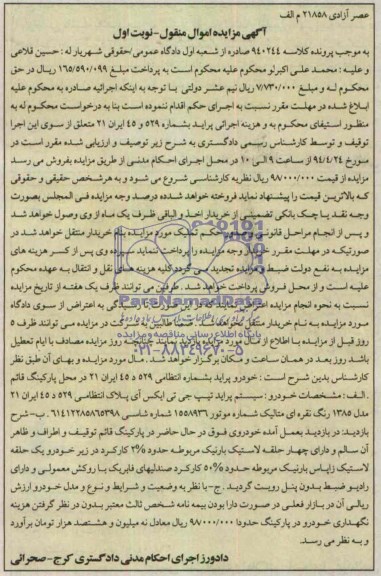 عصر آزادی ۲۱۸۵۸ م الف
آگهی مزایده اموال منقول-نوبت اول
به موجب پرونده کلاسه ۹۴۰۲۴۴ صادره از شعبه اول دادگاه عمومی/حقوقی شهریار له : حسین قلاعی
و علیه : محمد علی اکبرلو محکوم علیه محکوم است به پرداخت مبلغ ۱۶۵/۵۹۰/۰۹۹ ریال در حق
محکوم له و مبلغ ۷/۷۳۰/۰۰۰ ریال نیم عشر دولتی با توجه به اینکه اجرائیه صادره به محکوم علیه
ابلاغ شده در مهلت مقرر نسبت به اجرای حکم اقدام ننموده است بنا به درخواست محکوم له به
منظور استیفای محکوم به و هزینه اجرائی پراید بشماره ۵۲۹ و ۴۵ ایران ۲۱ متعلق از سوی این اجرا
توقیف و توسط کارشناس رسمی دادگستری به شرح زیر توصیف و ارزیابی شده مقرر است در
مورخ ۹۴/۴/۲۴ از ساعت ۹ الی ۱۰ در محل اجرای احکام مدنی از طریق مزایده بفروش می رسد
مزایده از قیمت ۹۸/۰۰۰/۰۰۰ ریال نظریه کارشناسی شروع می شود و به هرشخص حقیقی و حقوقی
که بالاترین قیمت را پیشنهاد نماید فروخته خواهد شد ده درصد وجه مزایده فی المجلس بصورت
وجه نقد یا چک بانکی تضمینی از خریدار اخذ و الباقی ظرف یک ماه از وی وصول خواهد شد
و پس از انجام مراحل قانونی و حکم تملیک مورد مزایده به نام خریدار منتقل خواهد شد در
صورتیکه در مهلت مقرر خریدار وجه مزایده را پرداخت ننماید سپرده وی پس از کسر هزینه های
مزایده به نفع دولت ضبط و مزایده تجدید می گردد کلیه هزینه های نقل و انتقال به عهده محکوم
علیه است و از محل فروش پرداخت خواهد شد. طرفین می توانند ظرف یک هفته از تاریخ مزایده
نسبت به نحوه انجام مزایده
مزایده به نام خریدار
روز قبل از مزایده با اطلاع از مال مورد مزایده بازدید نمایند چنانچه روز مزایده مصادف با ایام تعطیل
باشد روز بعد در همان ساعت و مکان برگزار خواهد شد. مال مورد مزایده و بهای آن طبق نظر
کارشناس بدین شرح است : خودرو پراید بشماره انتظامی ۵۲۹ د ۴۵ ایران ۲۱ در محل پارکینگ قائم
.الف: مشخصات خودرو : سیستم پراید تیپ جی تی ایکس آی پلاک انتظامی ۵۲۹ د ۴۵ ایران ۲۱
مدل ۱۳۸۵ رنگ نقره ای متالیک شماره موتور ۱۵۵۸۹۳۶ شماره شاسی ۶۱۴۱۲۲۸۵۸۶۵۳۹۸ . ب-شرح
بازدید: در بازدید بعمل آمده خودروی فوق در حال حاضر در پارکینگ قائم توقیف و اطراف و ظاهر
آن سالم و دارای چهار حلقه لاستیک بارنیک مربوطه حدود ۳٪ کارکرد در زیر خودرو یک حلقه
لاستیک زاپاس بارنیک مربوطه حدود ۵۰٪ کارکرد صندلیهای فابریک با روکش معمولی و دارای
رادیو ضبط بدون پنل رویت گردید .ج-با نظر به وضعیت و شرایط و نوع و مدل خودرو ارزش
ریالی آن در بازار فعلی در صورت دارا بودن بیمه نامه شخص ثالث معتبر بدون در نظر گرفتن هزینه
نگهداری خودرو در پارکینگ حدودا ۹۸/۰۰۰/۰۰۰ ریال معادل نه میلیون و هشتصد هزار تومان برآورد
و به نظر می رسد.
دادورز اجرای احکام مدنی دادگستری کرج-صحرائی
ParsNamadData
۰۲۱-۸۸۳۴۹۶۷۰-۵